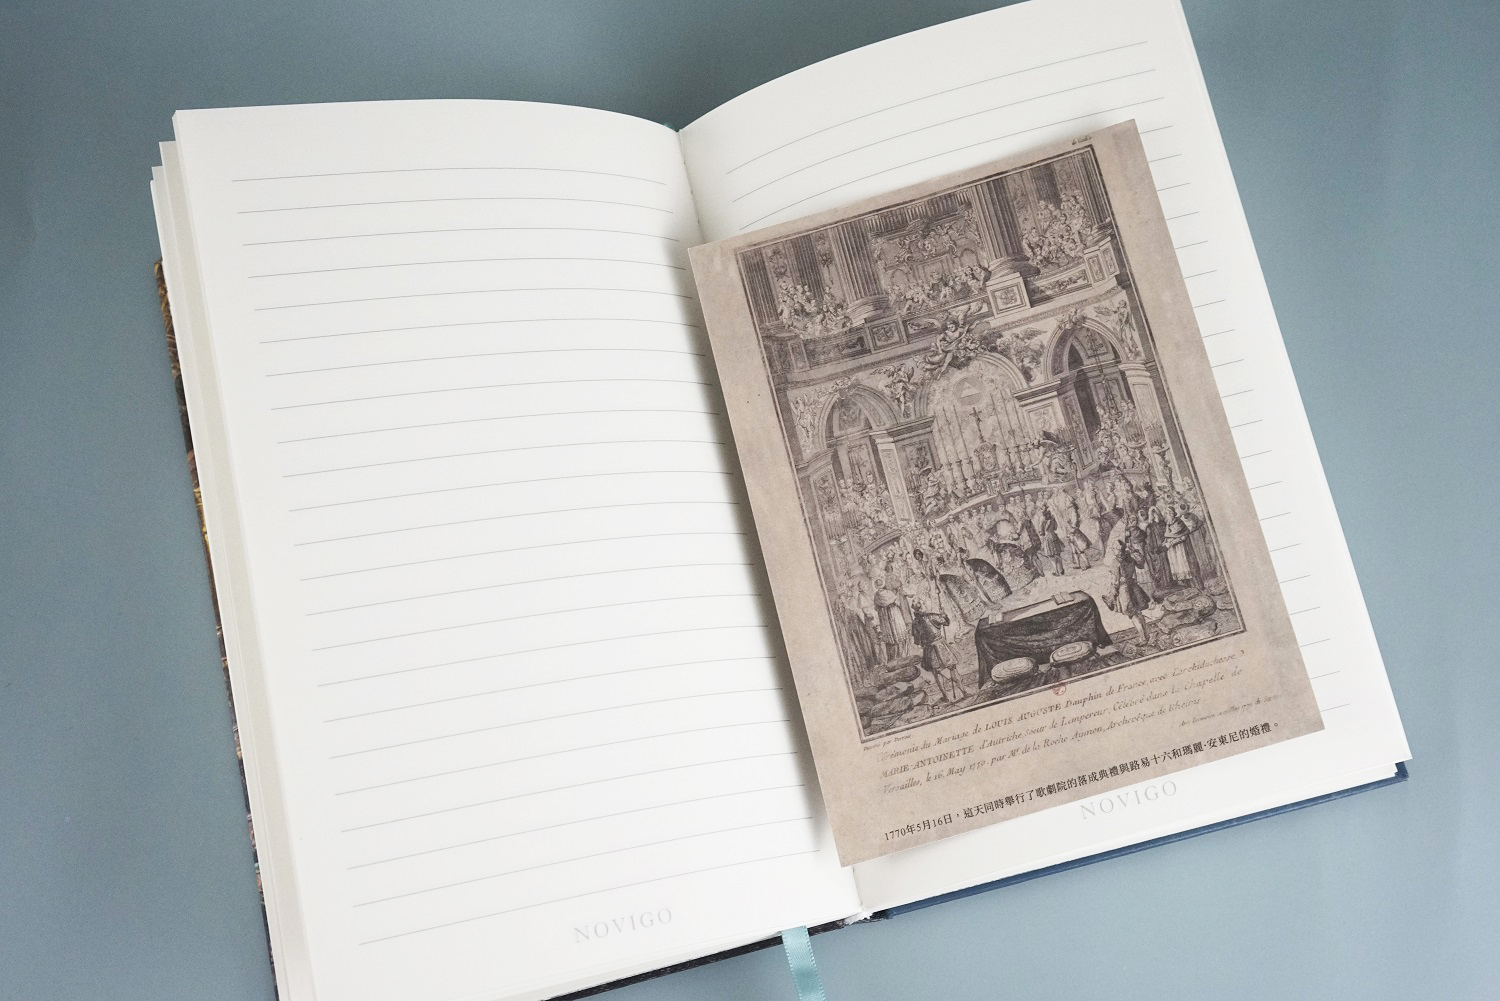 Cérémonie du Mariage de LOUIS AUGUSTE Dauphin de France, avec l'archiduchesse
MARIE-ANTOINETTE d'Autriche, sœur de l'empereur; Célébré dans la Chapelle de
Versailles, le 16. May 1770. par Mr. de la Roche Aymon, Archevêque de Rheims
1770年5月16日，這天同時舉行了歌劇院的落成典禮與路易十六和瑪麗·安東尼的婚禮。
NOVIGO
NOVIGO